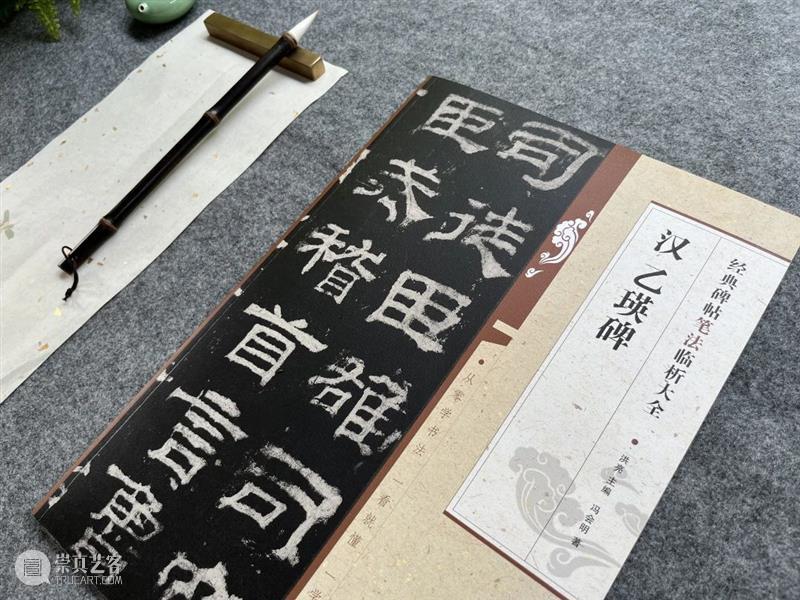 经典碑帖笔法临析大全
洪亮 主编 冯会明 著
汉 乙瑛碑
从零学书法 一看就懂 一学
司徒臣雄司空
臣戒稽首言魯
崇真艺客
TRUEART.COM